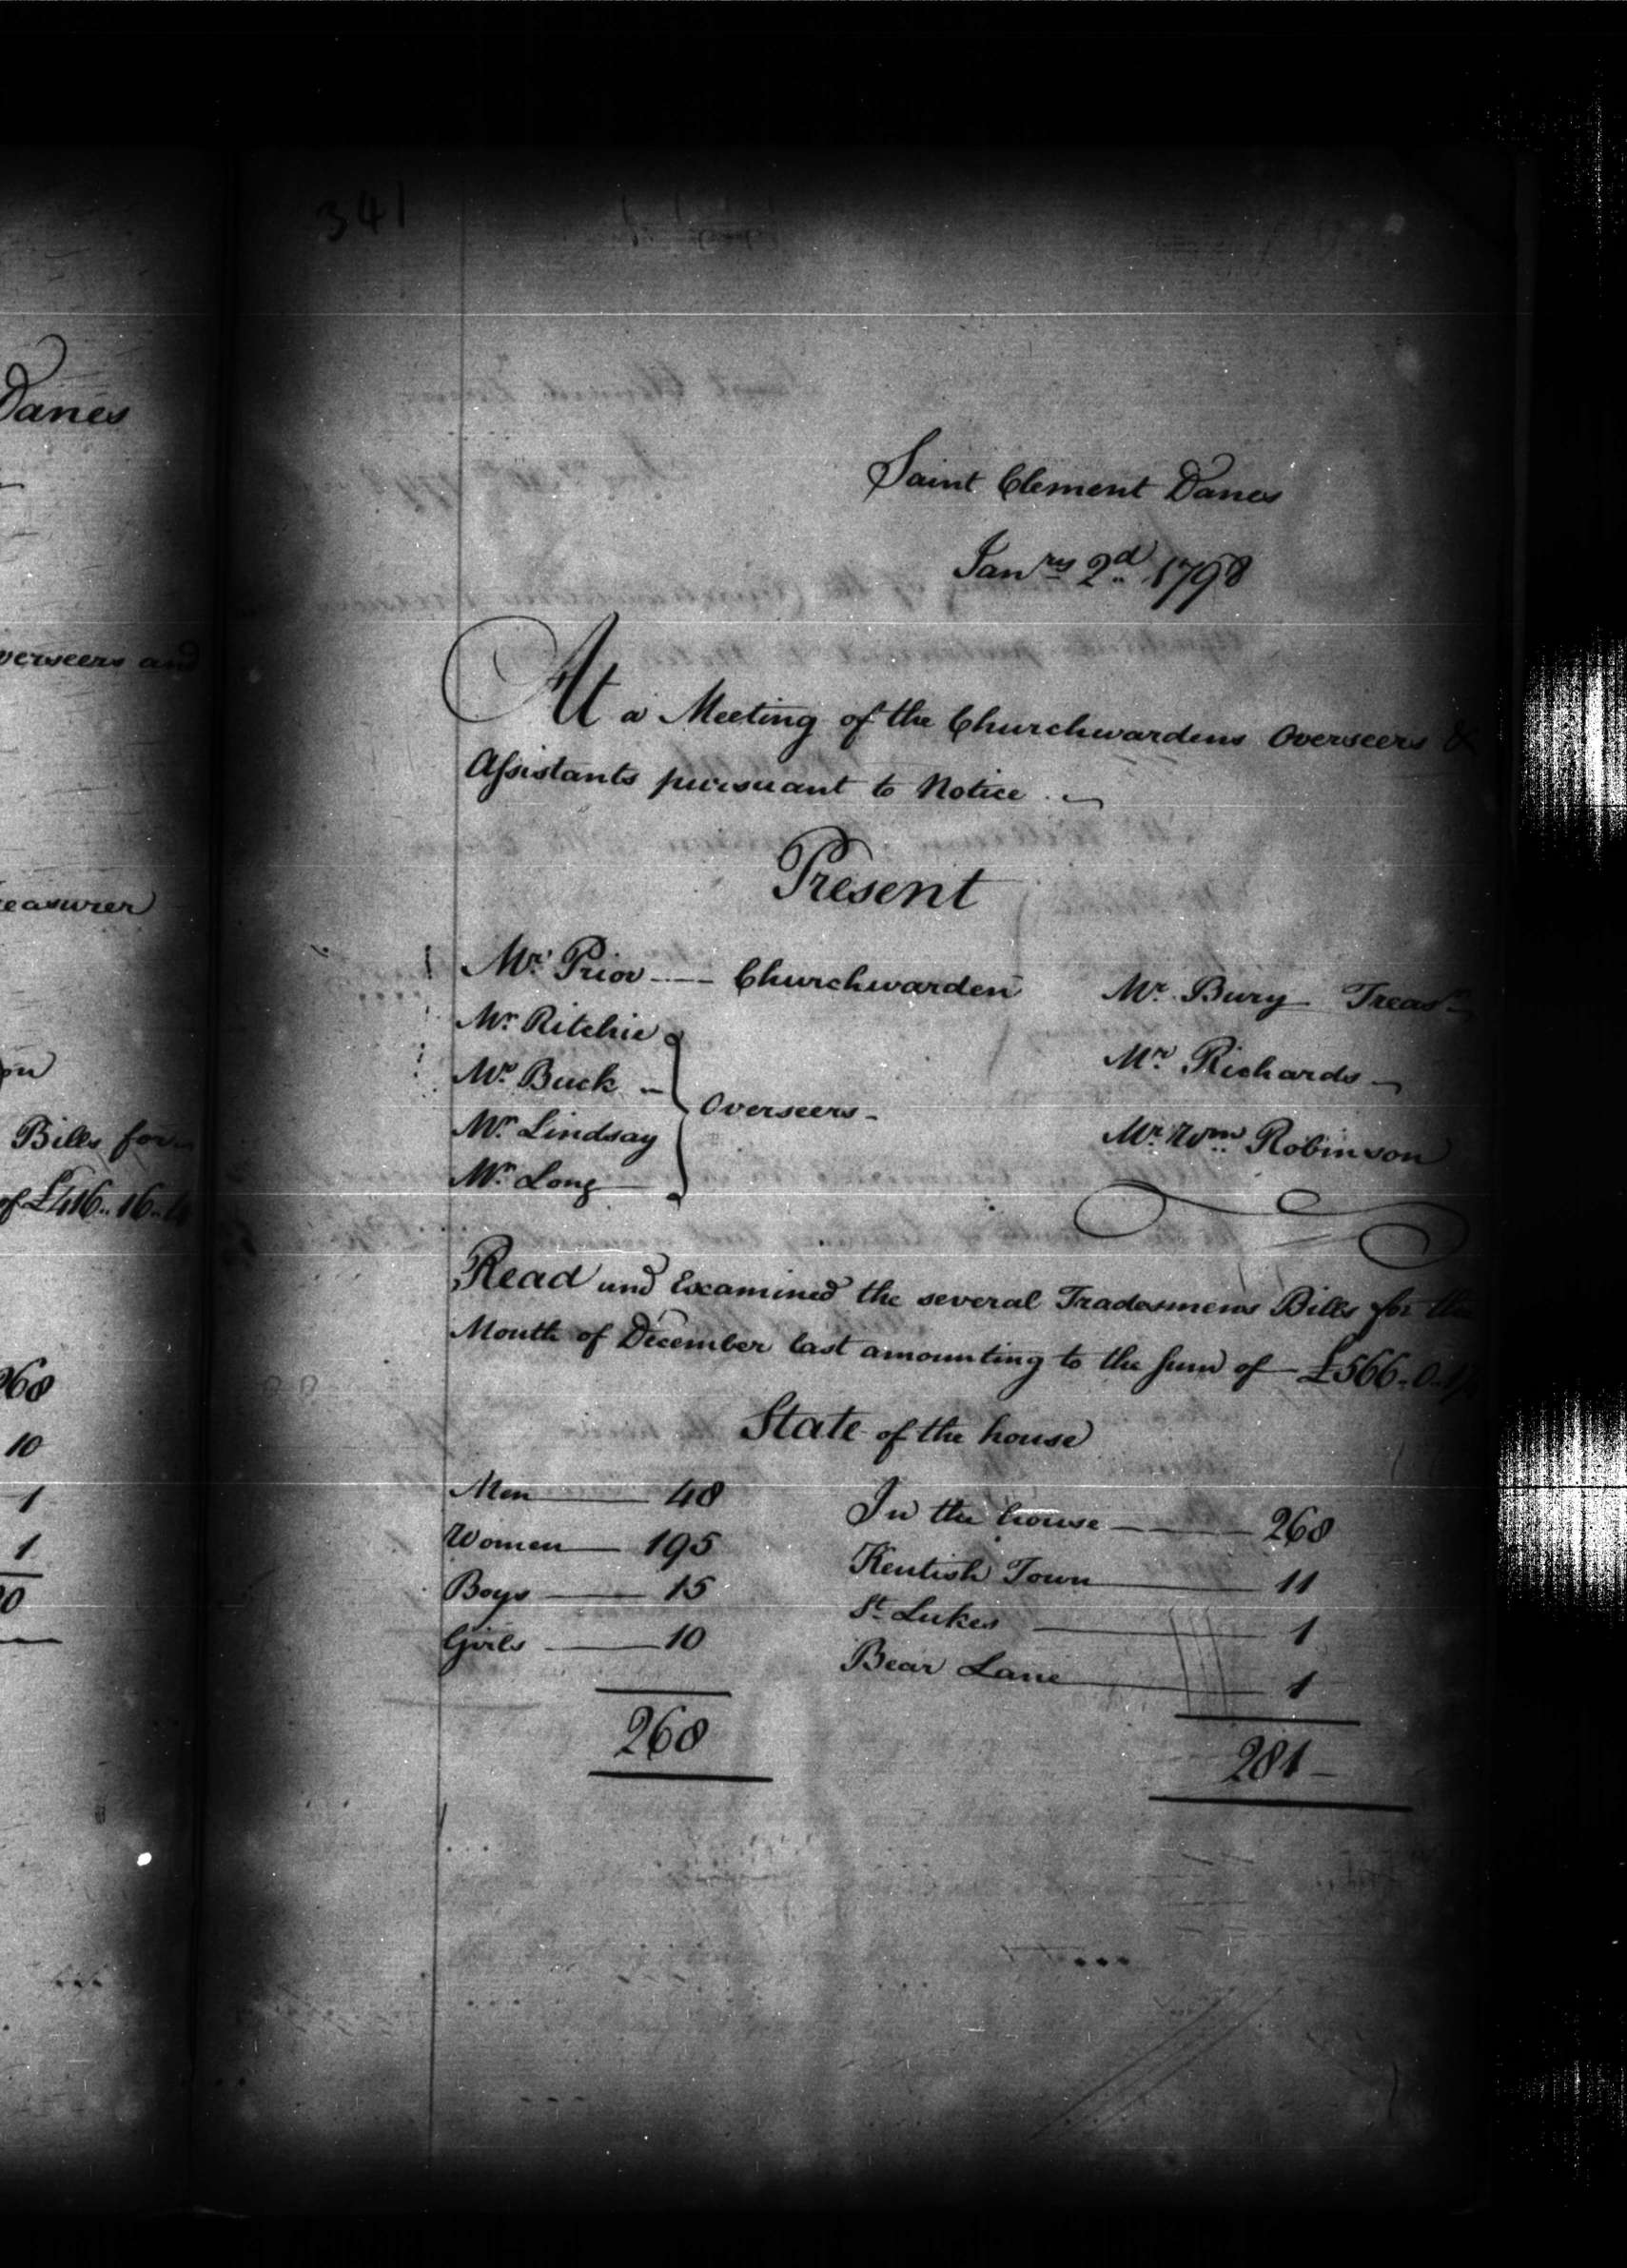 Danes
verseers and
easurer
on
Bills for
of £416.. 16..
268
10
1
1
0
341
Saint Clement Danes
Janry 2d. 1798
At a Meeting of the Churchwardens Overseers &
Assistants pursuant to Notice
Present
Mr. Prior — Churchwarden Mr. Bury Treasr
Mr Ritchie
Mr. Buck Mr Richards
Overseers
Mr. Lindsay Mr. Wm. Robinson
Mr. Long
Read and Examined the several Tradesmens Bills for the
Month of December last amounting to the Sum of £566..0..
State of the house
Men — 48 In the house — 268
Women — 195 Kentish Town — 11
Boys — 15 St. Lukes — 1
Girls — 10 Bear Lane — 1
268 281